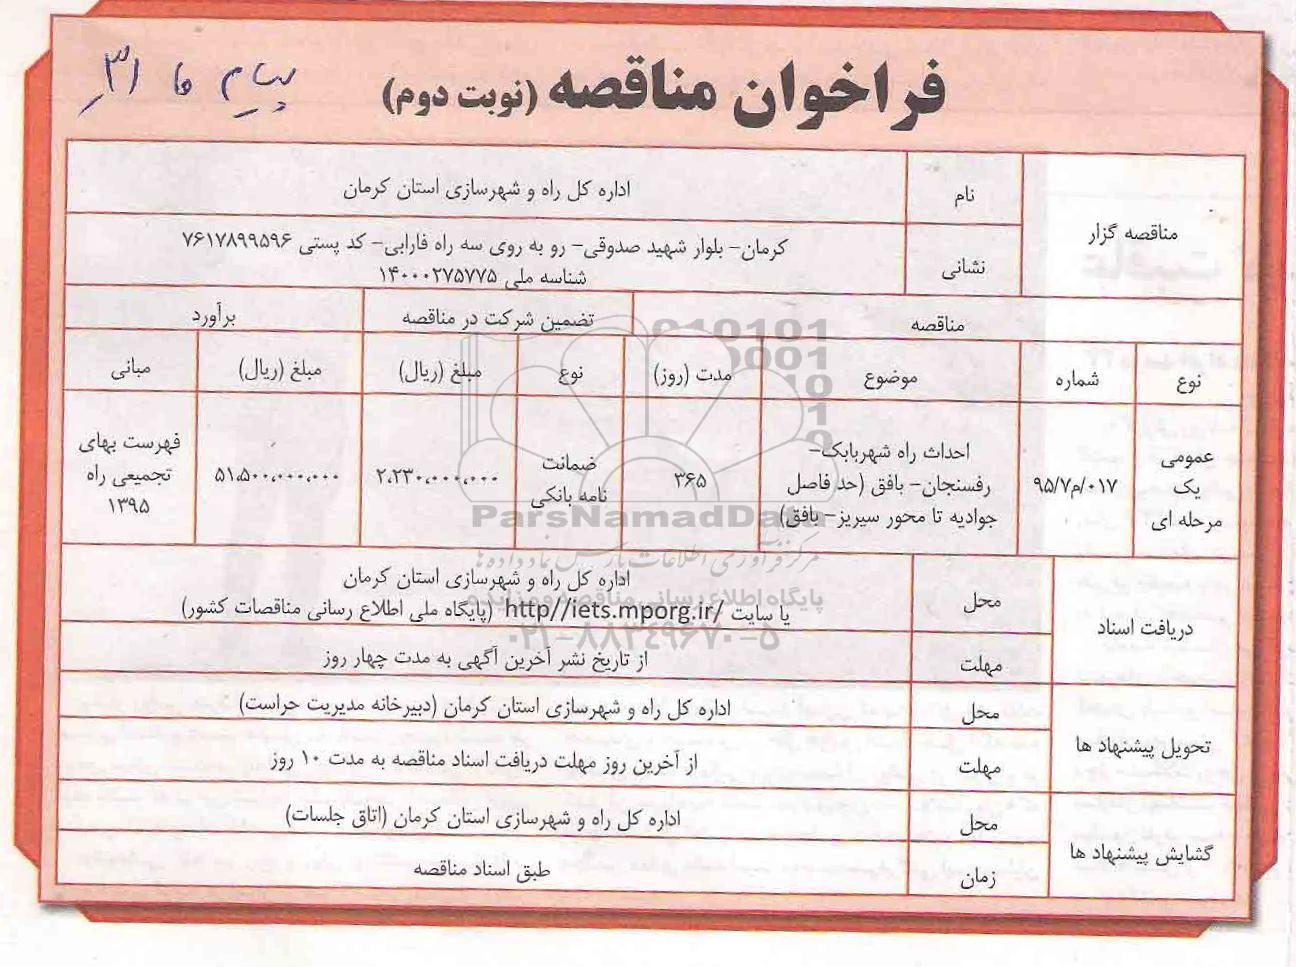 فراخوان مناقصه (نوبت دوم)
پیام ما
مناقصه گزار
نام
اداره کل راه و شهرسازی استان کرمان
نشانی
کرمان- بلوار شهید صدوقی- رو به روی سه راه فارابی- کد پستی ۷۶۱۷۸۹۹۵۹۶
شناسه ملی ۱۴۰۰۰۲۷۵۷۷۵
مناقصه
تضمین شرکت در مناقصه
برآورد
نوع
شماره
موضوع
مدت (روز)
نوع
مبلغ (ریال)
مبلغ (ریال)
مبانی
عمومی
یک
مرحله ای
۹۵/۷/م/۰۱۷
احداث راه شهربابک-
رفسنجان- بافق (حد فاصل
جوادیه تا محور سیریز- بافق)
۳۶۵
ضمانت
نامه بانکی
۲،۲۳۰،۰۰۰،۰۰۰
۵۱،۵۰۰،۰۰۰،۰۰۰
فهرست بهای
تجمیعی راه
۱۳۹۵
دریافت اسناد
محل
اداره کل راه و شهرسازی استان کرمان
یا سایت http//iets.mporg.ir/ (پایگاه ملی اطلاع رسانی مناقصات کشور)
مهلت
از تاریخ نشر آخرین آگهی به مدت چهار روز
تحویل پیشنهاد ها
محل
اداره کل راه و شهرسازی استان کرمان (دبیرخانه مدیریت حراست)
مهلت
از آخرین روز مهلت دریافت اسناد مناقصه به مدت ۱۰ روز
گشایش پیشنهاد ها
محل
اداره کل راه و شهرسازی استان کرمان (اتاق جلسات)
زمان
طبق اسناد مناقصه
ParsNamadData
مرکز فرآوری اطلاعات پارس نماد داده ها
پایگاه اطلاع رسانی مناقصه و مزایده
۰۲۱-۸۸۳۴۹۶۷۰-۵